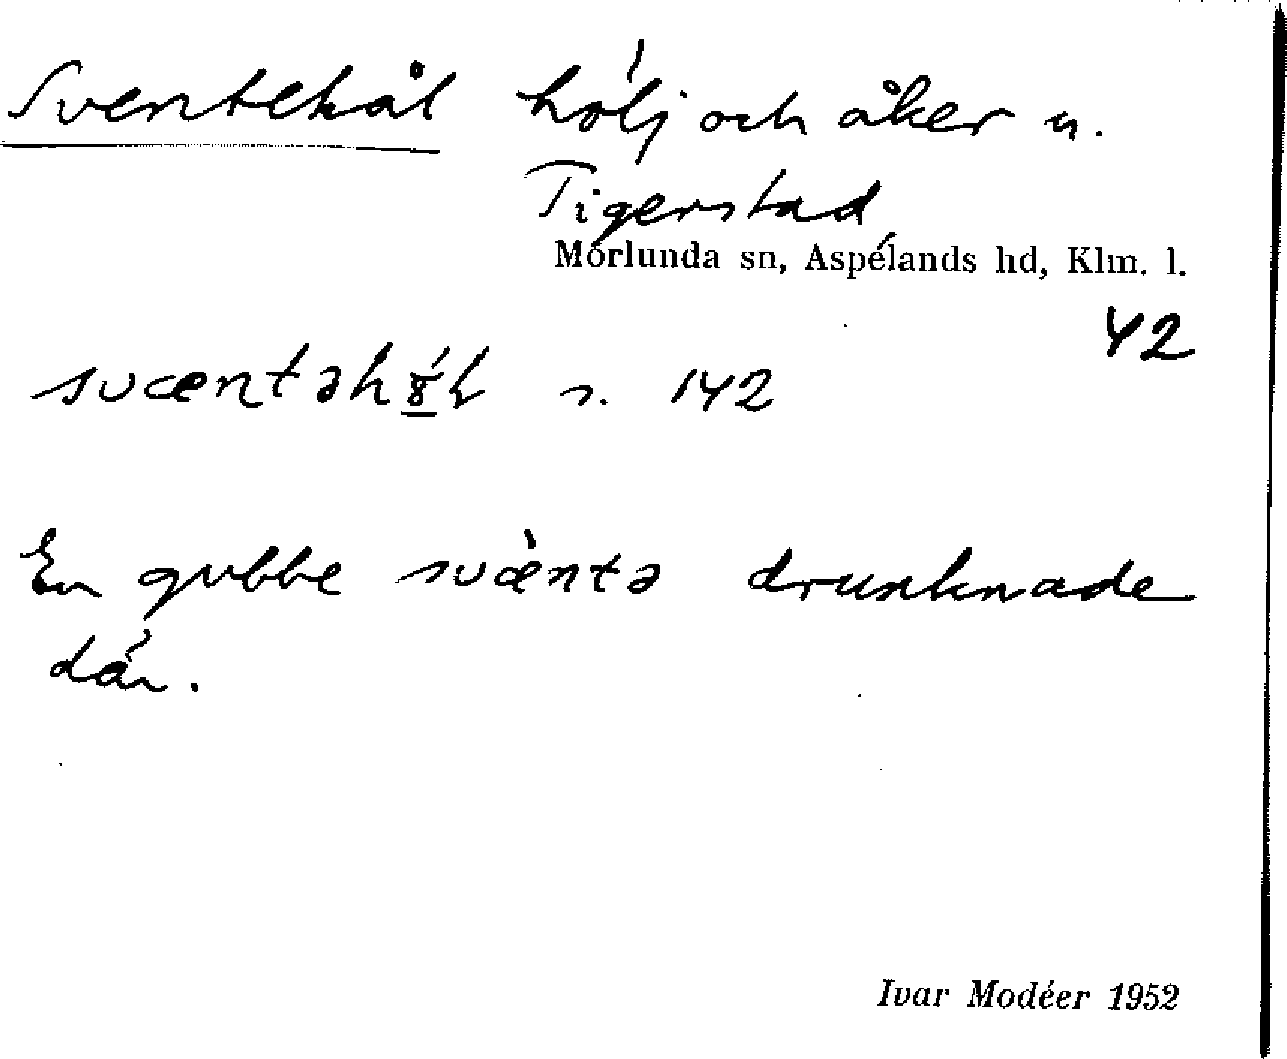 Sventehål hölj och åker u.
Tigerstad
Mörlunda sn, Aspelands hd, Klm. l.
42
s. 142
En gubbe svὰntə drunknade
där.
Ivar Modéer 1952